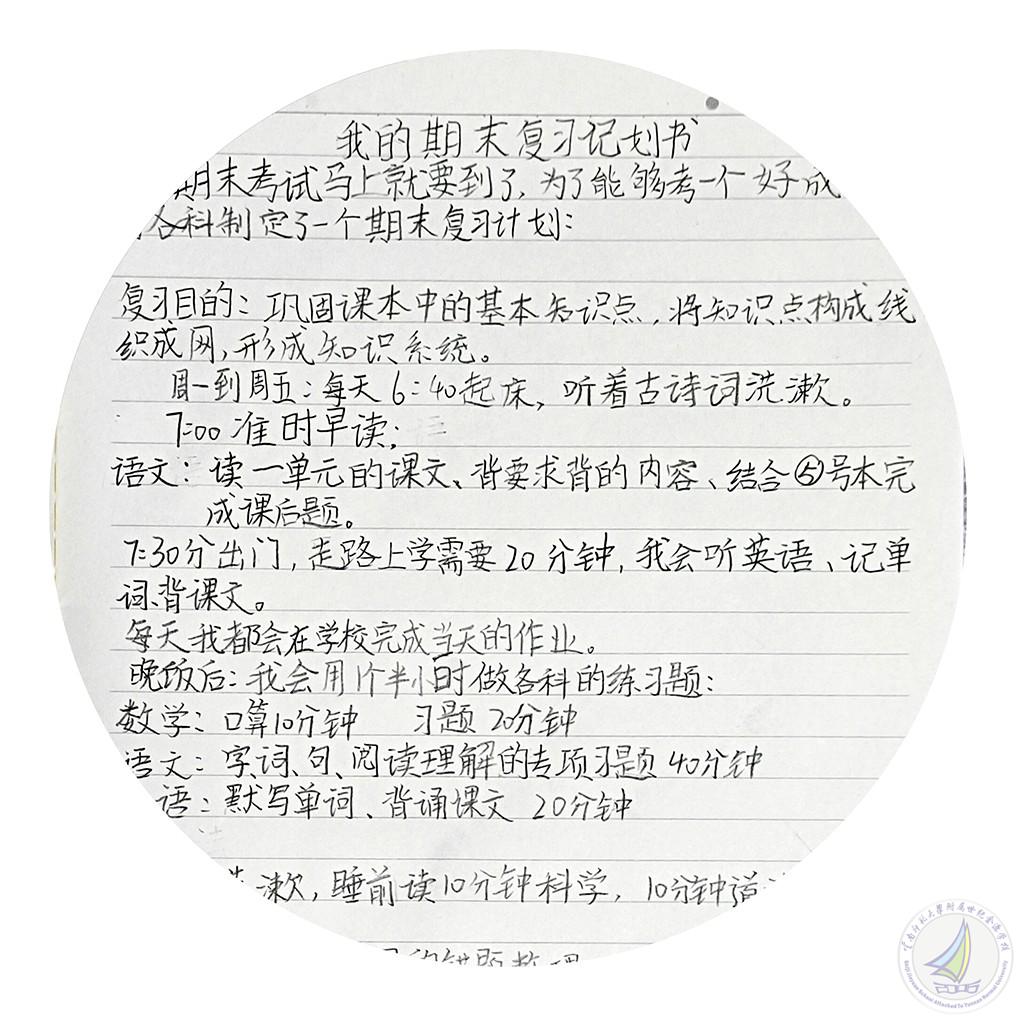 我的期末复习记划书
期末考试马上就要到了,为了能够考一个好成
各科制定了一个期末复习计划:
复习目的:巩固课本中的基本知识点,将知识点构成线
织成网,形成知识系统。
周一到周五:每天6:40起床,听着古诗词洗漱。
7:00准时早读;
语文:读一单元的课文、背要求背的内容、结合⑤号本完
成课后题。
7:30分出门,走路上学需要20分钟,我会听英语、记单
词、背课文。
每天我都会在学校完成当天的作业。
晚饭后:我会用1个半小时做各科的练习题:
数学:口算10分钟 习题20分钟
语文:字、词、句、阅读理解的专项习题40分钟
语:默写单词、背诵课文 20分钟
漱,睡前读10分钟科学,10分钟道
的错题整理
云南师范大学附属世纪金源学校